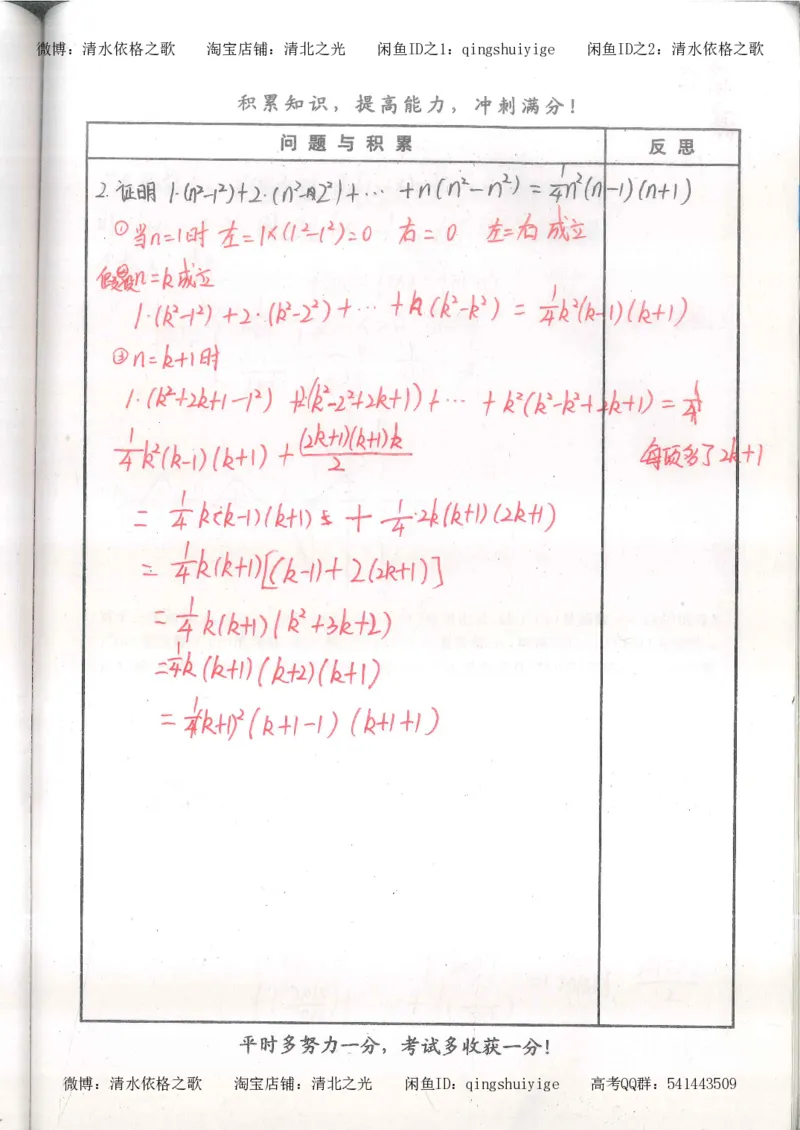 微博：清水依格之歌 淘宝店铺：清北之光 闲鱼ID之1：qingshuiyige 闲鱼ID之2：清水依格之歌
积累知识，提高能力，冲刺满分！
问题与积累 反思
2.证明 1·(n²-1²)+2·(n²-2²)+⋯+n(n²-n²)=¼n²(n-1)(n+1)
①当n=1时 左=1×(1²-1²)=0 右=0 左=右 成立
假设n=k成立
1·(k²-1²)+2·(k²-2²)+⋯+k(k²-k²)=¼k²(k-1)(k+1)
②n=k+1时
1·(k²+2k+1-1²)+2·(k²-2²+2k+1)+⋯+k²(k²-k²+2k+1)=¼
¼k²(k-1)(k+1)+(2k+1)(k+1)k/2 每项多了2k+1
=¼k(k-1)(k+1)+¼·2k(k+1)(2k+1)
=¼k(k+1)[(k-1)+2(2k+1)]
=¼k(k+1)(k²+3k+2)
=¼k(k+1)(k+2)(k+1)
=¼(k+1)²(k+1-1)(k+1+1)
平时多努力一分，考试多收获一分！
微博：清水依格之歌 淘宝店铺：清北之光 闲鱼ID：qingshuiyige 高考QQ群：541443509